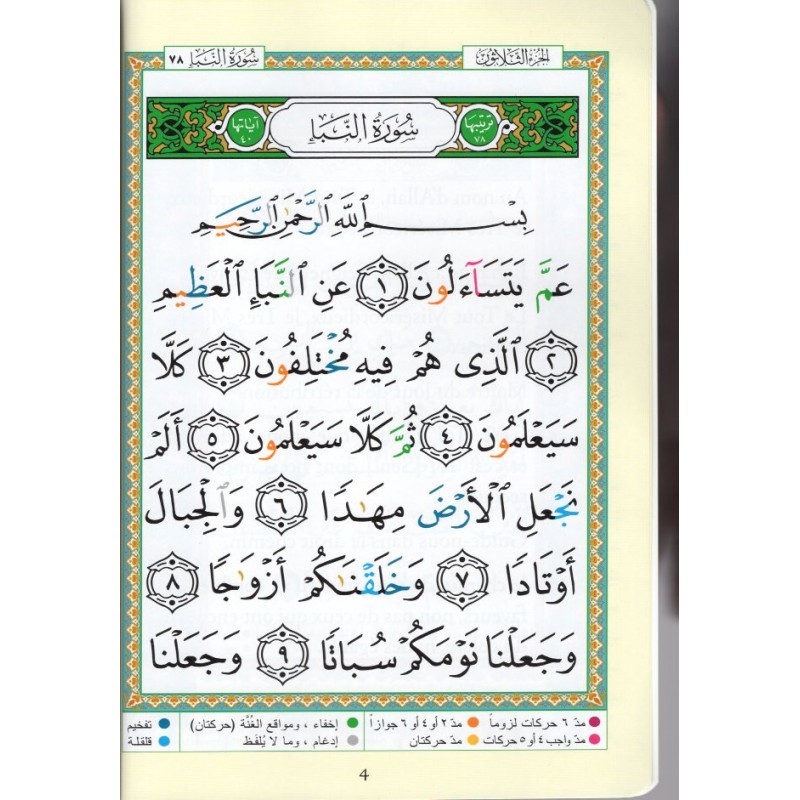 الجزء الثلاثون
سورة النبإ ٧٨
ترتيبها ٧٨
سُورَةُ النَّبَإِ
آياتها ٤٠
بِسْمِ ٱللَّهِ ٱلرَّحْمَٰنِ ٱلرَّحِيمِ
عَمَّ يَتَسَآءَلُونَ ١ عَنِ ٱلنَّبَإِ ٱلْعَظِيمِ
٢ ٱلَّذِى هُمْ فِيهِ مُخْتَلِفُونَ ٣ كَلَّا
سَيَعْلَمُونَ ٤ ثُمَّ كَلَّا سَيَعْلَمُونَ ٥ أَلَمْ
نَجْعَلِ ٱلْأَرْضَ مِهَٰدًا ٦ وَٱلْجِبَالَ
أَوْتَادًا ٧ وَخَلَقْنَٰكُمْ أَزْوَٰجًا ٨
وَجَعَلْنَا نَوْمَكُمْ سُبَاتًا ٩ وَجَعَلْنَا
مدّ ٦ حركات لزوماً مدّ ٢ أو ٤ أو ٦ جوازاً إخفاء ، ومواقع الغُنَّة (حركتان) تفخيم
مدّ واجب ٤ أو ٥ حركات مدّ حركتان إدغام ، وما لا يُلفَظ قلقلة
4